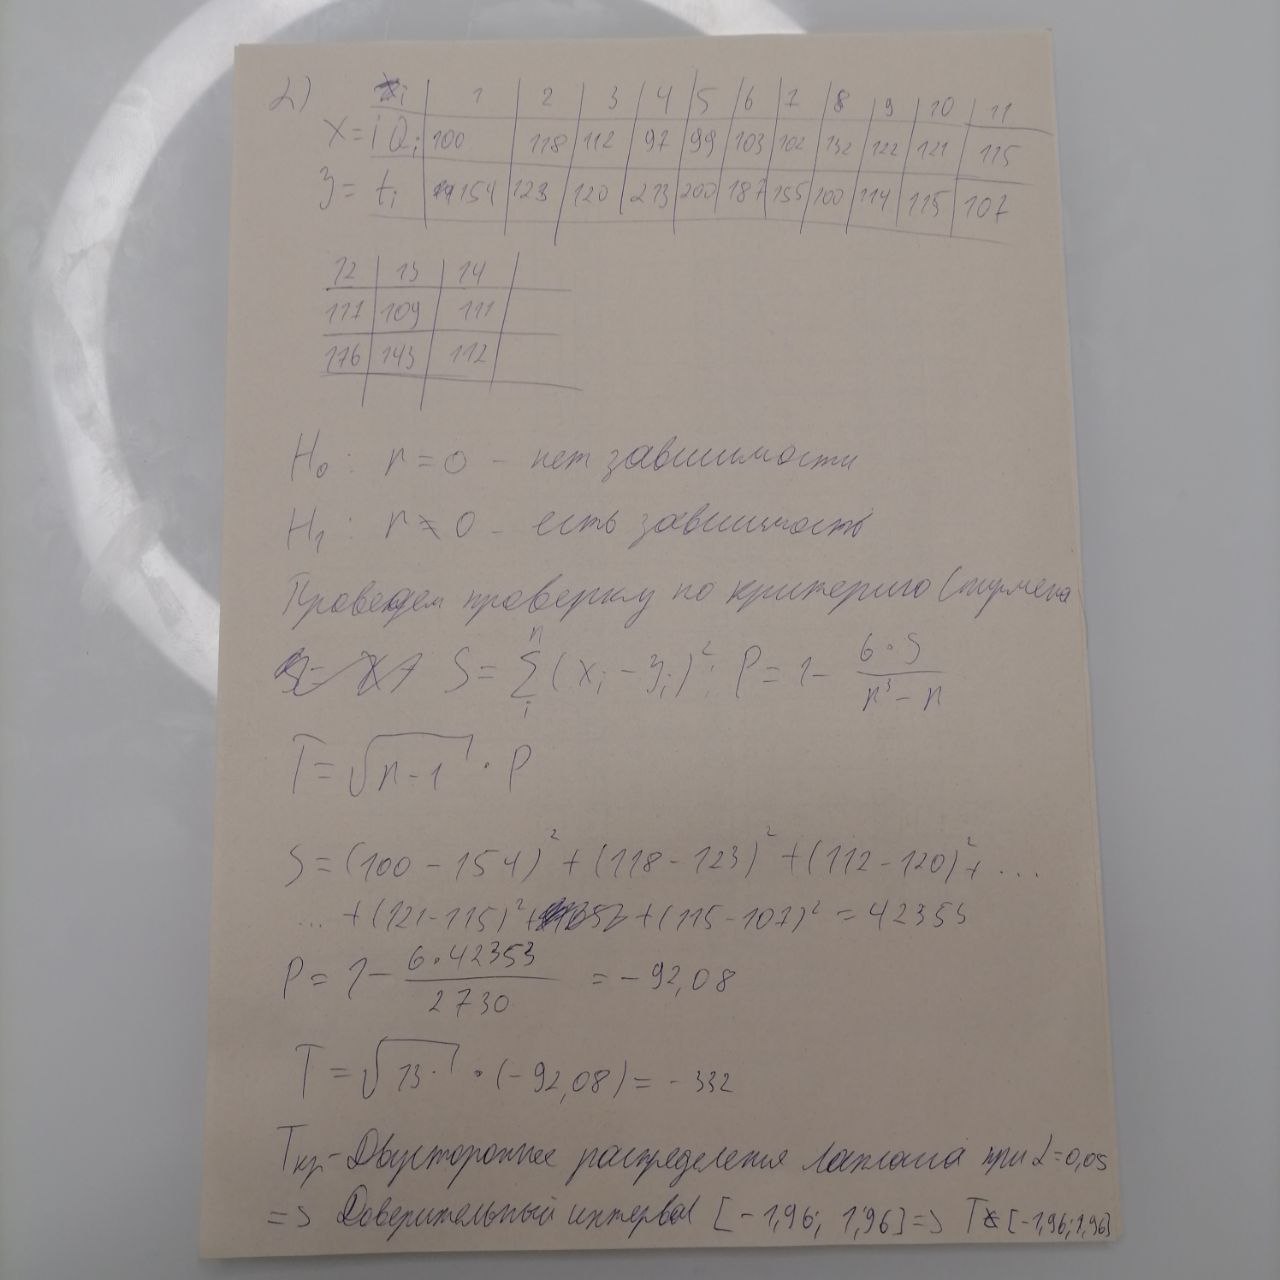 2) i 1 2 3 4 5 6 7 8 9 10 11
X = iQi 100 118 112 97 99 103 102 132 122 121 115
y = ti 154 123 120 213 200 187 155 100 114 115 107
12 13 14
117 109 111
176 143 112
H₀: r = 0 - нет зависимости
H₁: r ≠ 0 - есть зависимость
Проведем проверку по критерию
S = Σ(xi - yi)²; P = 1 - 6·S / n³ - n
T = √n-1 · P
S = (100 - 154)² + (118 - 123)² + (112 - 120)² + ...
... + (121 - 115)² + (115 - 107)² = 42353
P = 1 - 6·42353 / 2730 = -92,08
T = √13 · (-92,08) = -332
Tкр - Двустороннее распределения Лапласа при α = 0,05
=> Доверительный интервал [-1,96; 1,96] => T ∉ [-1,96; 1,96]